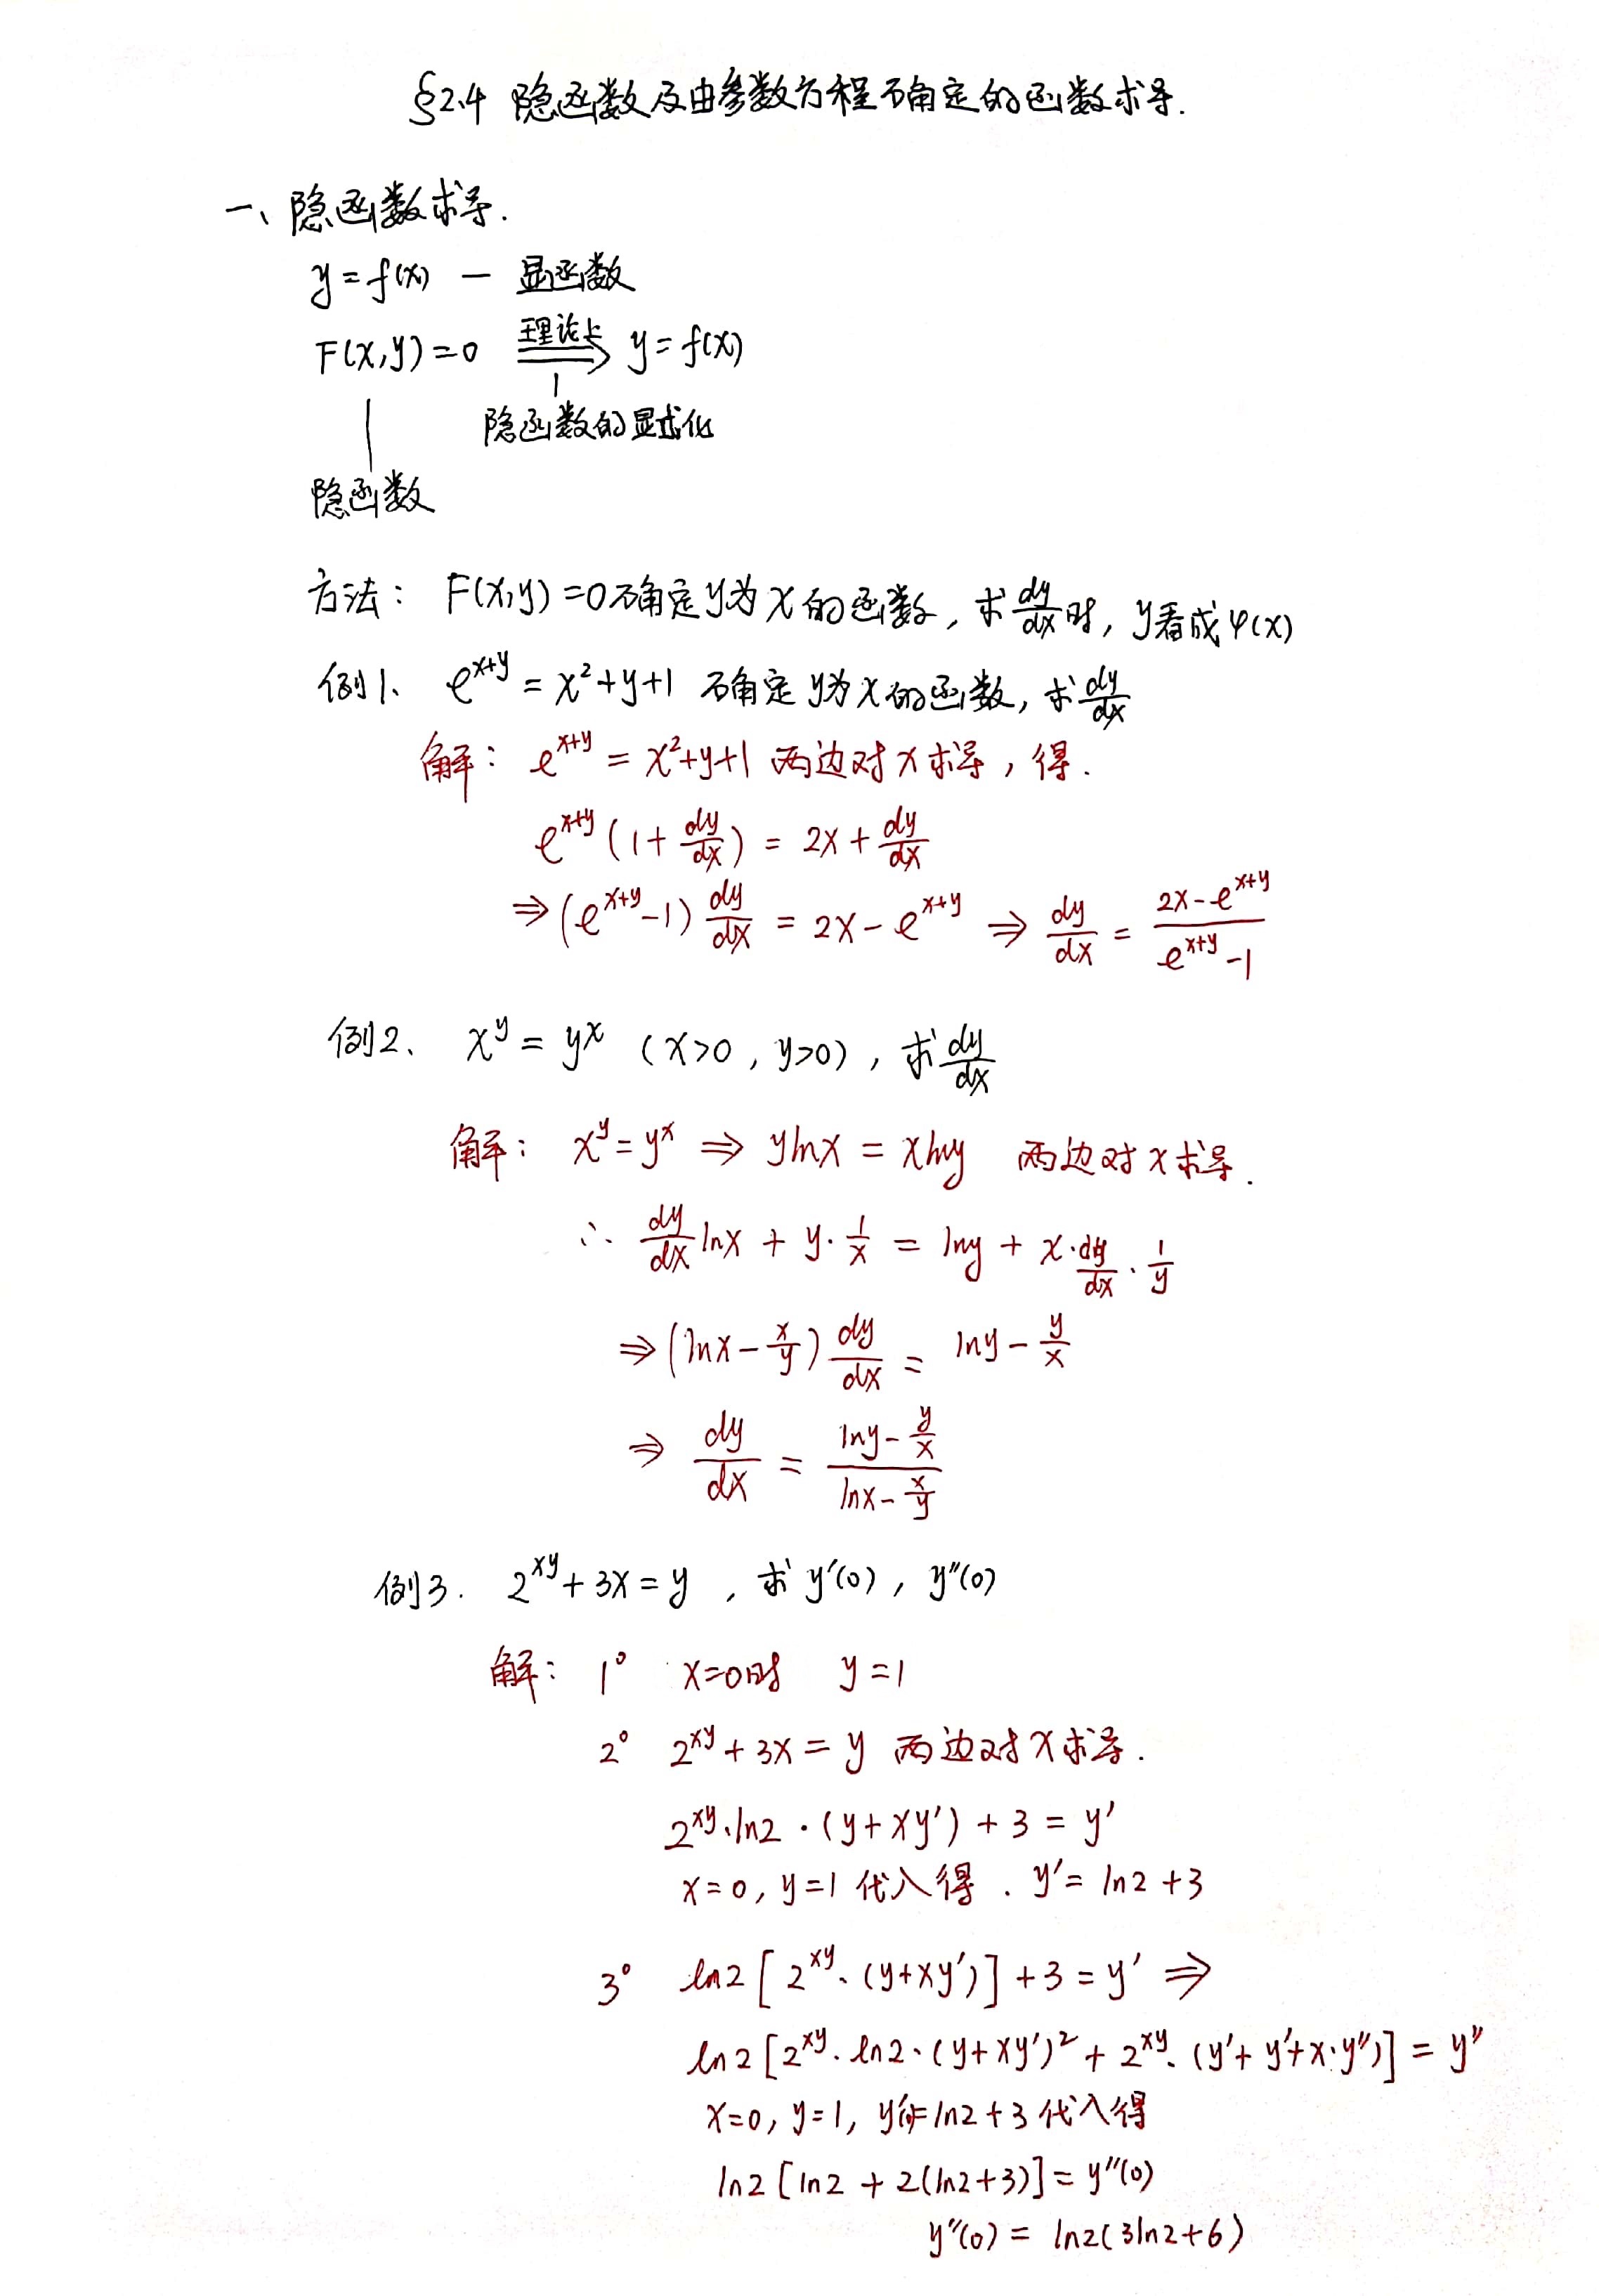 §2.4 隐函数及由参数方程确定的函数求导.
一、隐函数求导.
y = f(x) — 显函数
F(x,y)=0 理论上⇒ y = f(x)
隐函数的显式化
隐函数
方法： F(x,y)=0确定y为x的函数, 求dy/dx时, y看成φ(x)
例1、 e^(x+y) = x²+y+1 确定y为x的函数, 求dy/dx
解： e^(x+y) = x²+y+1 两边对x求导, 得.
e^(x+y) (1 + dy/dx) = 2x + dy/dx
⇒ (e^(x+y) - 1) dy/dx = 2x - e^(x+y) ⇒ dy/dx = (2x - e^(x+y))/(e^(x+y) - 1)
例2、 x^y = y^x (x>0, y>0), 求dy/dx
解： x^y = y^x ⇒ ylnx = xlny 两边对x求导.
∴ dy/dx lnx + y·1/x = lny + x·dy/dx·1/y
⇒ (lnx - x/y) dy/dx = lny - y/x
⇒ dy/dx = (lny - y/x)/(lnx - x/y)
例3. 2^(xy) + 3x = y , 求 y'(0), y''(0)
解： 1° x=0时 y=1
2° 2^(xy) + 3x = y 两边对x求导.
2^(xy)·ln2·(y+xy') + 3 = y'
x=0, y=1 代入得. y' = ln2 + 3
3° ln2 [2^(xy)·(y+xy')] + 3 = y' ⇒
ln2 [2^(xy)·ln2·(y+xy')² + 2^(xy)·(y'+y'+x·y'')] = y''
x=0, y=1, y'(0)=ln2+3 代入得
ln2 [ln2 + 2(ln2+3)] = y''(0)
y''(0) = ln2(3ln2+6)